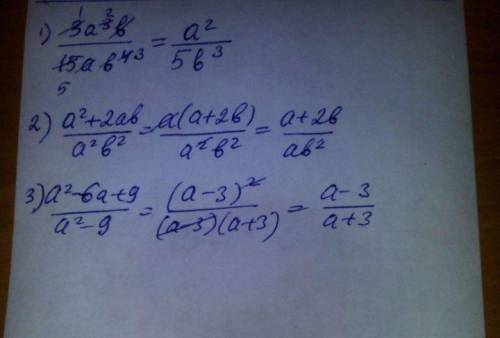 1) 3a³b / 15ab⁴ = a² / 5b³
2) a²+2ab / a²b² = a(a+2b) / a²b² = a+2b / ab²
3) a²-6a+9 / a²-9 = (a-3)² / (a-3)(a+3) = a-3 / a+3